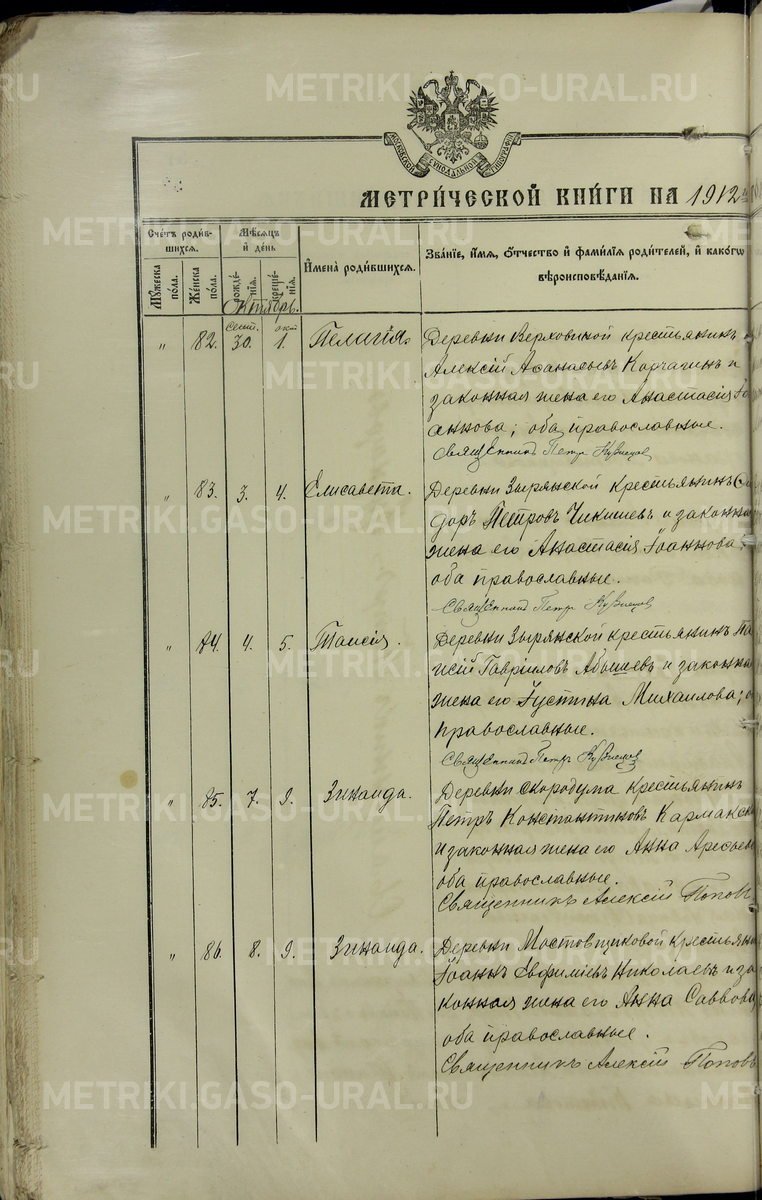 METRIKI.GASO-URAL.RU
МОСКОВСКОЙ СѴНОДАЛЬНОЙ ТИПОГРАФІИ
МЕТРИ́ЧЕСКОЙ КНИ́ГИ НА 1912
Сче́тъ роди́в-
шихся.
Мѣ́сяцъ
и҆ де́нь
И҆мена̀ роди́вшихся.
Зва́нїе, и҆́мя, ѻ҆́тчество и҆ фами́лїя роди́телей, и҆ како́гѡ
вѣроисповѣ́данїя.
Мꙋ́жеска по́ла.
Же́нска по́ла.
рожде́нїя.
креще́нїя.
Октябрь.
„ 82. сент. 30. окт 1. Пелагія.
Деревни Верховиной крестьянинъ
Алексій Аѳанасьевъ Корчагинъ и
законная жена его Анастасія Іо
аннова; оба православные.
Священникъ Петръ Кузнецов
„ 83. 3. 4. Елисавета.
Деревни Зырянской крестьянинъ
доръ Петровъ Чикишевъ и законна
жена его Анастасія Іоаннова;
оба православные.
Священникъ Петръ Кузнецов
„ 84. 4. 5. Таисія.
Деревни Зырянской крестьянинъ Па
исій Гавріиловъ Абышевъ и законна
жена его Іустина Михаилова; о
православные.
Священникъ Петръ Кузнецов
„ 85. 7. 9. Зинаида.
Деревни Скородума крестьянинъ
Петръ Константиновъ Кармакс
и законная жена его Анна Арсенье
оба православные.
Священникъ Алексій Поповъ
„ 86. 8. 9. Зинаида.
Деревни Мостовщиковой крестьяни
Іоаннъ Евфиміевъ Николаевъ и за
конная жена его Анна Саввова
оба православные.
Священникъ Алексій Поповъ